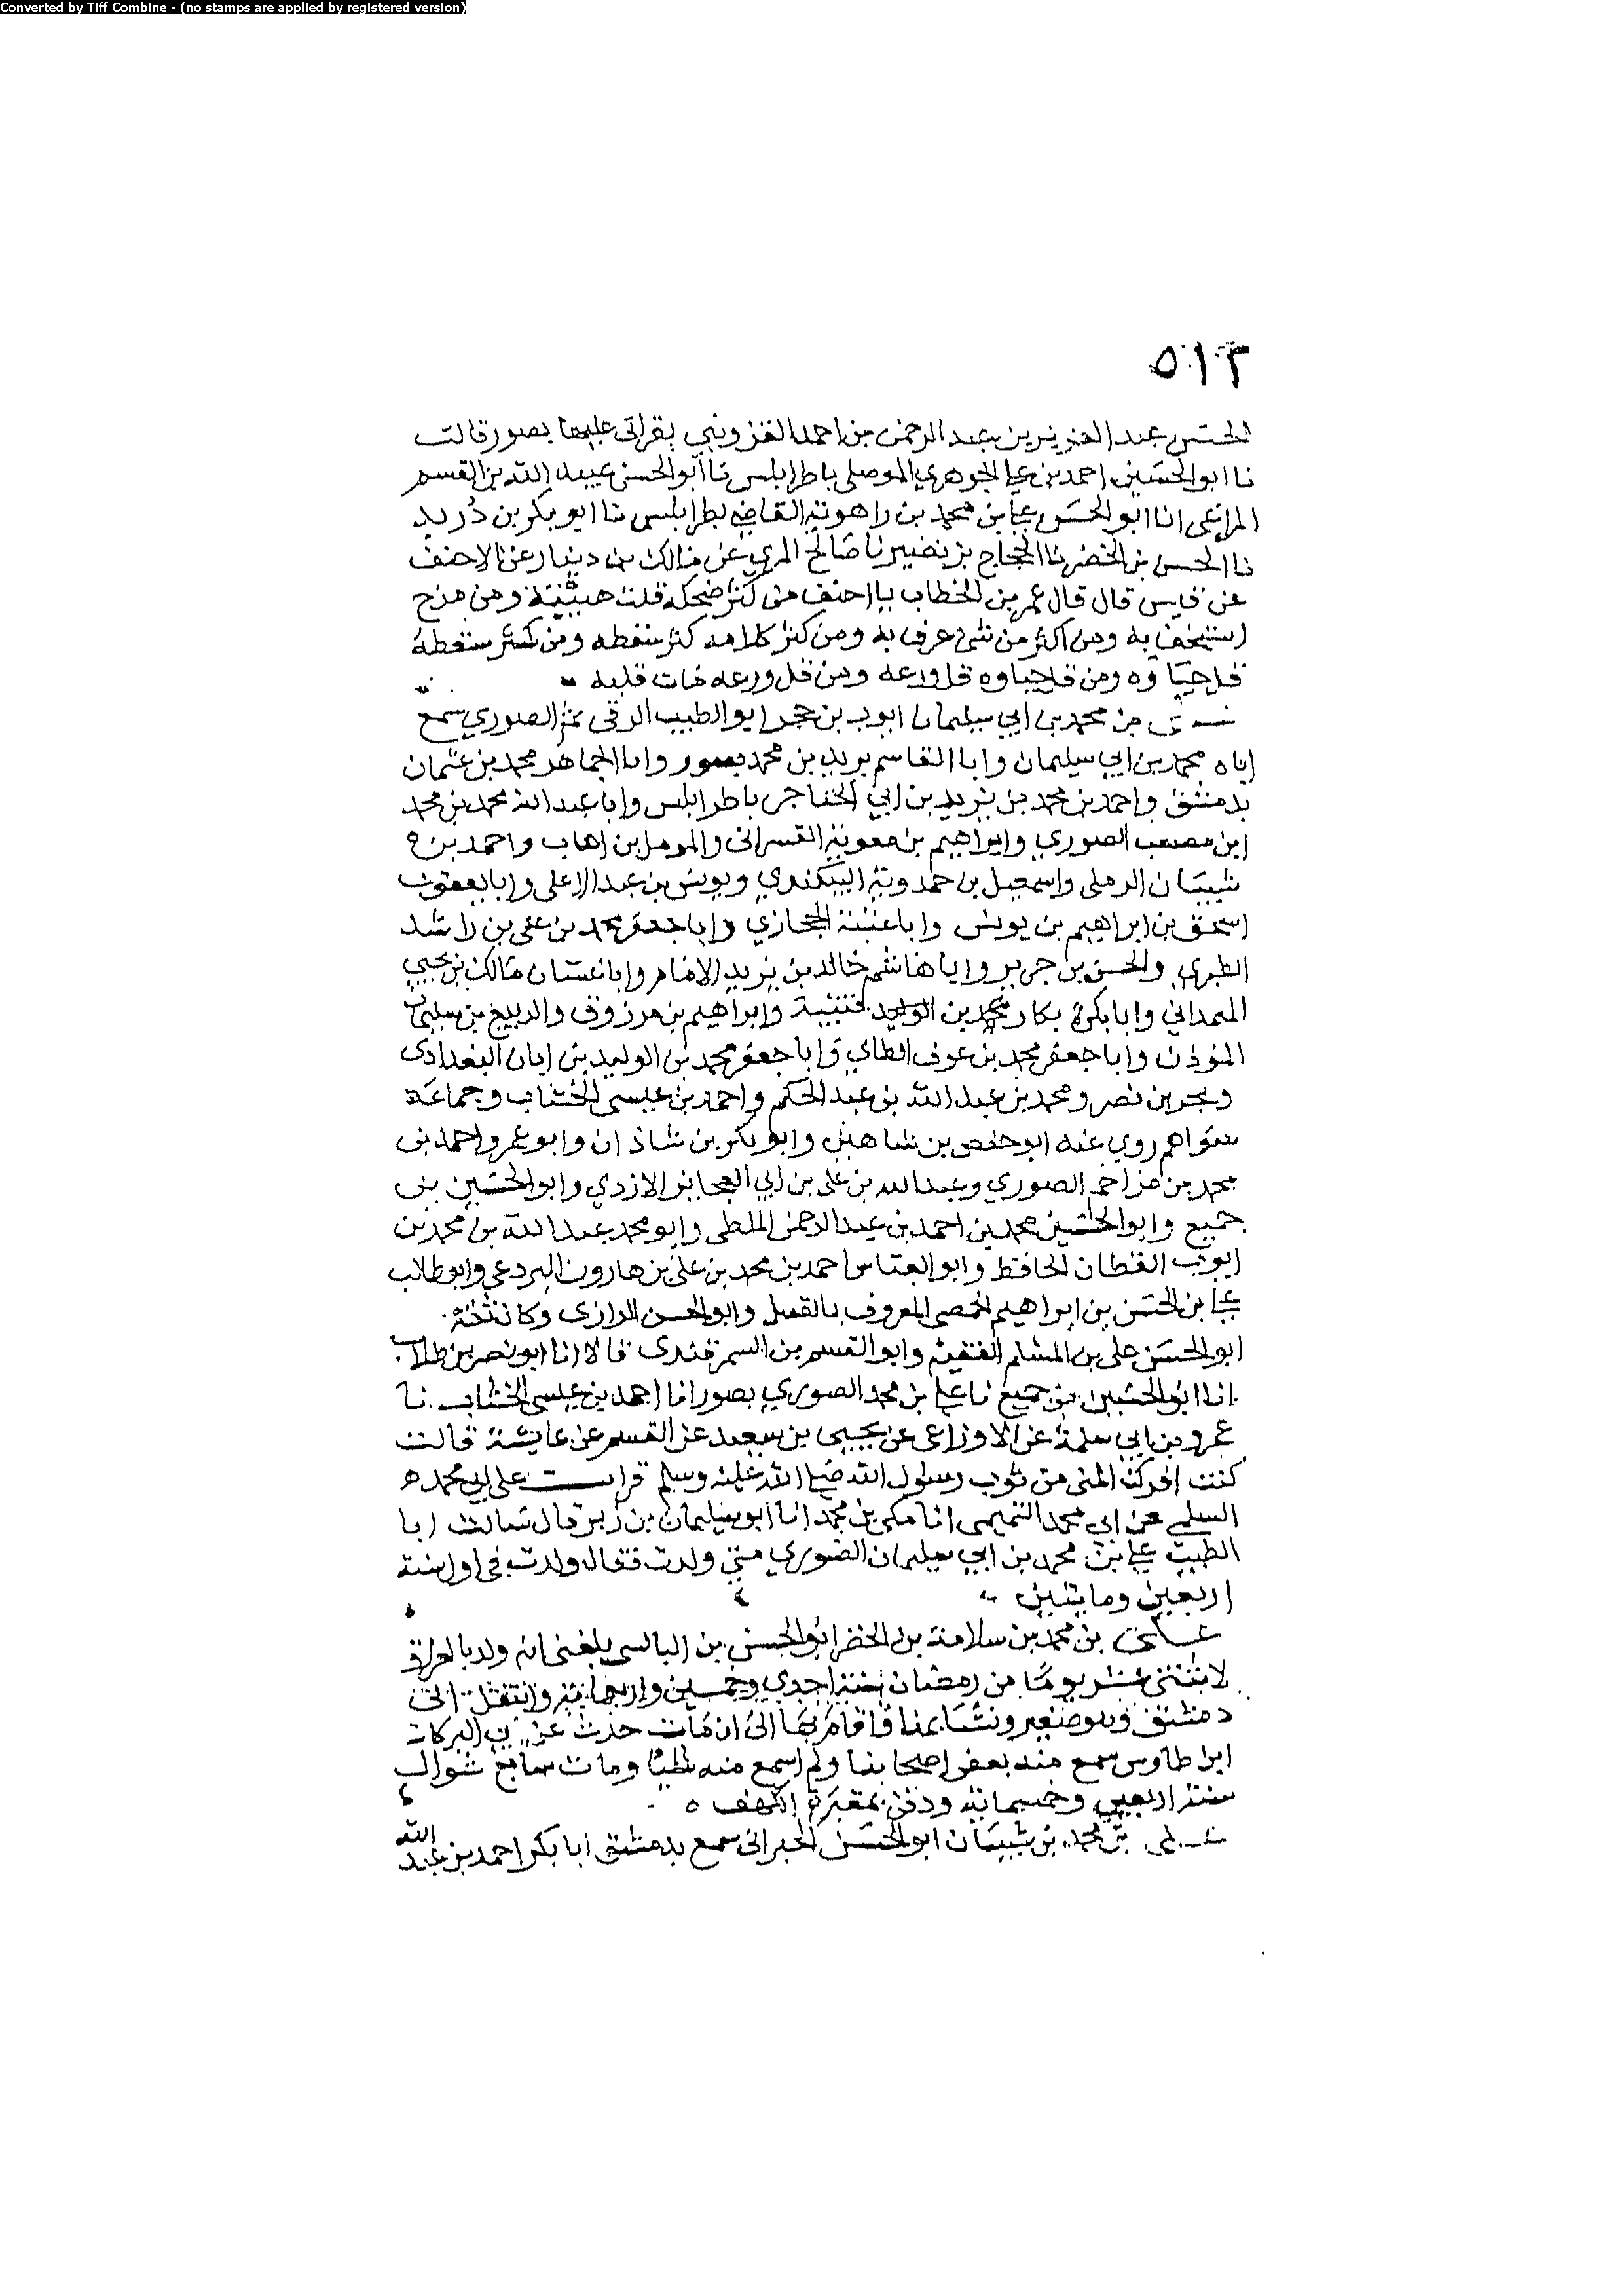 Converted by Tiff Combine - (no stamps are applied by registered version)
٥١٣
الحسن عبد العزيز بن عبد الرحمن بن احمد القزويني بقراتي عليها بصور قالت
نا ابو الحسين احمد بن علي الجوهري الموصلي باطرابلس نا ابو الحسن عبيد الله بن القسم
المراغي انا ابو الحسن علي بن محمد بن راهويه القاضي بطرابلس نا ابو بكر بن دريد
نا الحسن بن الخضر نا الحجاج بن نصير نا صالح المري عن مالك بن دينار عن الاحنف
عن قيس قال قال عمر بن الخطاب يا احنف من كثر ضحكه قلت هيبته ومن مزح
استخف به ومن اكثر من شي عرف به ومن كثر كلامه كثر سقطه ومن كثر سقطه
قل حياوه ومن قل حياوه قل ورعه ومن قل ورعه مات قلبه
علي بن محمد بن ابي سليمان ايوب بن حجر ابو الطيب الرقي ثم الصوري سمع
اباه محمد بن ابي سليمان وابا القاسم يزيد بن محمد بصور وابا الجماهر محمد بن عثمان
بدمشق واحمد بن محمد بن يزيد بن ابي الخناجر باطرابلس وابا عبد الله محمد بن محمد
ابن مصعب الصوري وابراهيم بن معوية القسراني والمومل بن اهاب واحمد بن
شيبان الرملي واسمعيل بن حمدوية البيكندي ويونس بن عبد الاعلى وابا يعقوب
اسحق بن ابراهيم بن يونس وابا عتبة الحجازي وابا جعفر محمد بن علي بن راشد
الطبري والحسن بن جرير وابا هاشم خالد بن يزيد الامام وابا غسان مالك بن يحيي
الهمداني وابا بكرة بكار وابراهيم بن مرزوق والربيع بن سليمان
الموذن وابا جعفر محمد بن عوف الطائي وابا جعفر محمد بن الوليد بن ابان البغدادي
وبحر بن نصر ومحمد بن عبد الله بن عبد الحكم واحمد بن عيسى الخشاب وجماعة
سواهم روي عنه ابو حفص بن شاهين وابو بكر بن شاذان وابو عمرو احمد بن
محمد بن مزاحم الصوري وعبد الله بن علي بن ابي العجايز الازدي وابو الحسين بن
جميع وابو الحسين محمد بن احمد بن عبد الرحمن الملطي وابو محمد عبد الله بن محمد بن
ايوب القطان الحافظ وابو العباس احمد بن محمد بن علي بن هارون البردعي وابو طالب
علي بن الحسن بن ابراهيم الحمصي المعروف وابو الحسن الرازي وكان ثقة
ابو الحسن علي بن المسلم الفقيه وابو القسم بن السمرقندي قالا انا ابو نصر بن طلاب
انا ابو الحسين بن جميع نا علي بن محمد الصوري بصور انا احمد بن عيسى الخشاب نا
عمرو بن ابي سلمة عن الاوزاعي عن يحيى بن سعيد عن القسم عن عايشة قالت
كنت افرك المني من ثوب رسول الله صلى الله عليه وسلم قرات على ابي محمد
السلمي عن ابي محمد التميمي انا مكي بن محمد انا ابو سليمان بن زبر قال سالت ابا
الطيب علي بن محمد بن ابي سليمان الصوري متى ولدت فقال ولدت في اول سنة
اربعين ومايتين
علي بن محمد بن سلامة بن الخضر ابو الحسن بن البالسي بلغني انه ولد بالعراق
لاثنتي عشر يوما من رمضان سنة احدي وخمسين واربعماية وانتقل الى
دمشق وهو صغير ونشا بها فاقام بها الى ان مات حدث عن ابي البركات
ابن طاوس سمع منه بعض اصحابنا ولم اسمع منه شيا ومات سابع شوال
سنة اربعين وخمسماية ودفن بمقبرة الكهف
علي بن محمد بن شيبان ابو الحسن سمع بدمشق ابا بكر احمد بن عبد الله